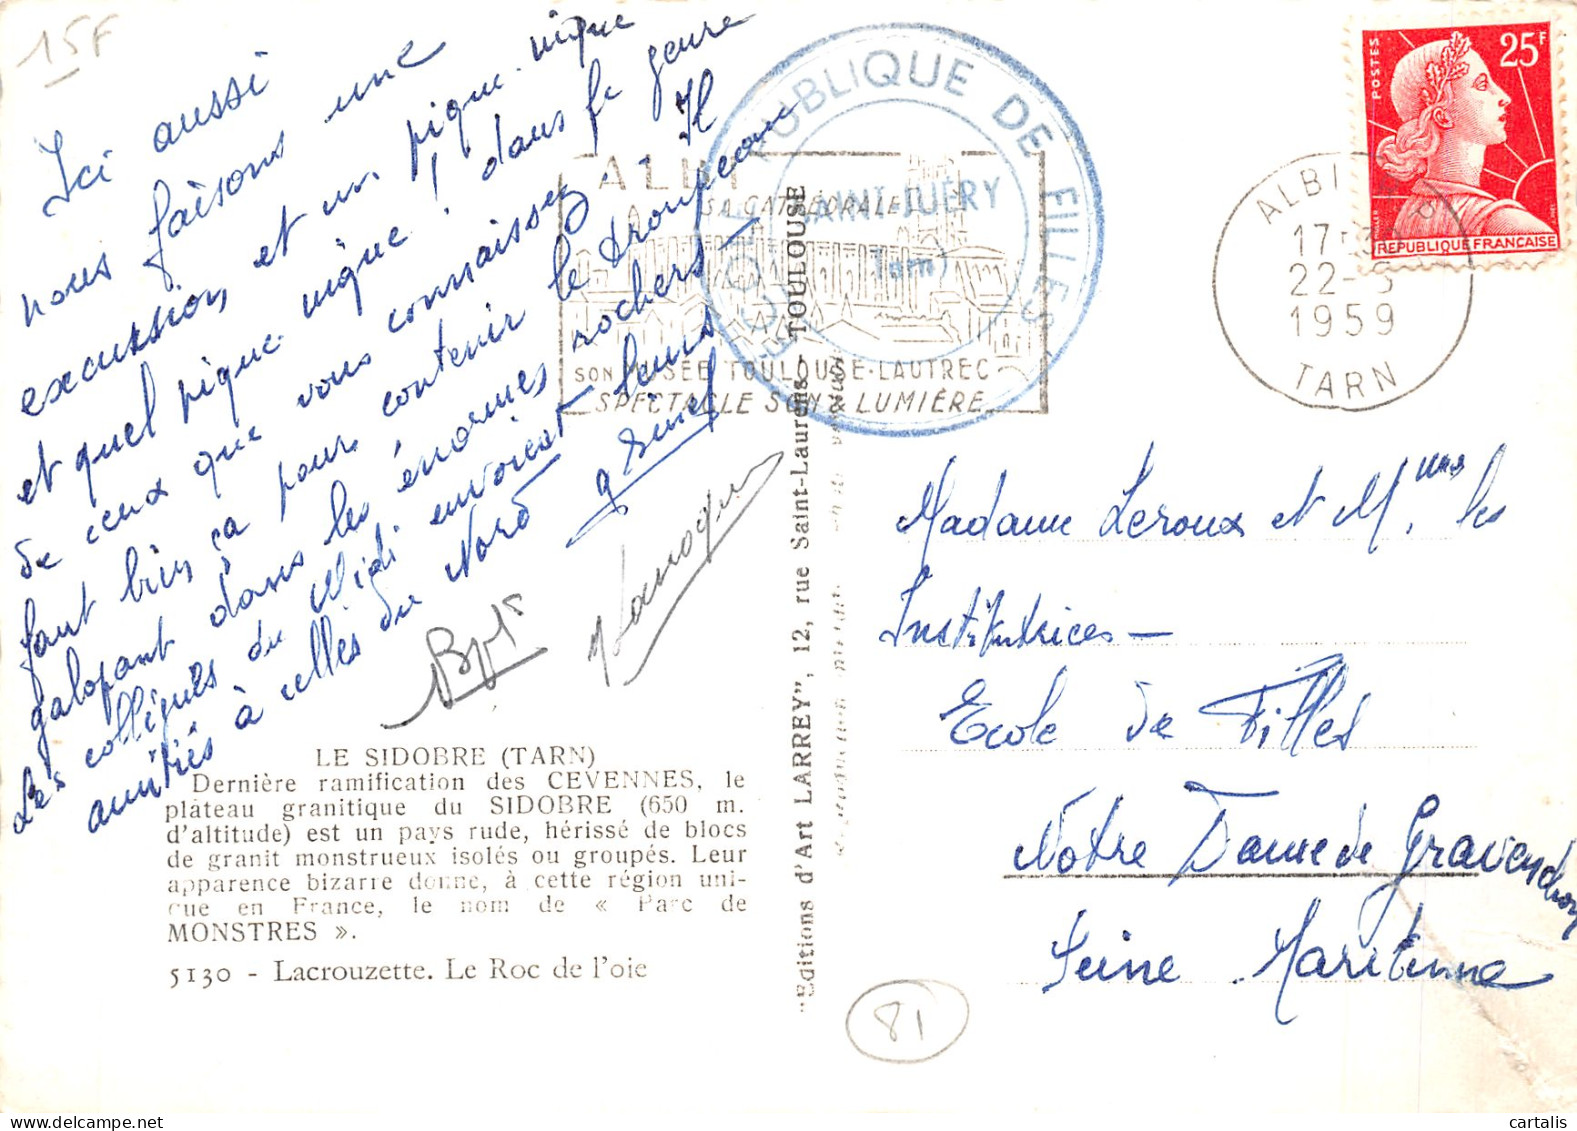 15F
Ici aussi
nous faisons une
excursion, et un pique-nique
et quel pique-nique ! dans le genre
de ceux que vous connaissez. Il
faut bien ça pour contenir le troupeau
galopant dans les énormes rochers -
Les collègues du Midi envoient leurs
amitiés à celles du Nord
LE SIDOBRE (TARN)
Dernière ramification des CEVENNES, le
plateau granitique du SIDOBRE (650 m.
d'altitude) est un pays rude, hérissé de blocs
de granit monstrueux isolés ou groupés. Leur
apparence bizarre donne, à cette région uni-
que en France, le nom de « Parc de
MONSTRES ».
5130 - Lacrouzette. Le Roc de l'oie
"Editions d'Art LARREY", 12, rue Saint-Laurent - TOULOUSE
ECOLE PUBLIQUE DE FILLES
SAINT-JUÉRY
(Tarn)
ALBI
SA CATHÉDRALE
SON MUSÉE TOULOUSE-LAUTREC
SPECTACLE SON & LUMIÈRE
ALBI
22-
1959
TARN
POSTES
25F
REPUBLIQUE FRANÇAISE
Madame Leroux et Mmes les
Institutrices -
Ecole de Filles
Notre Dame de Gravenchon
Seine Maritime
81
www.cartalis.com